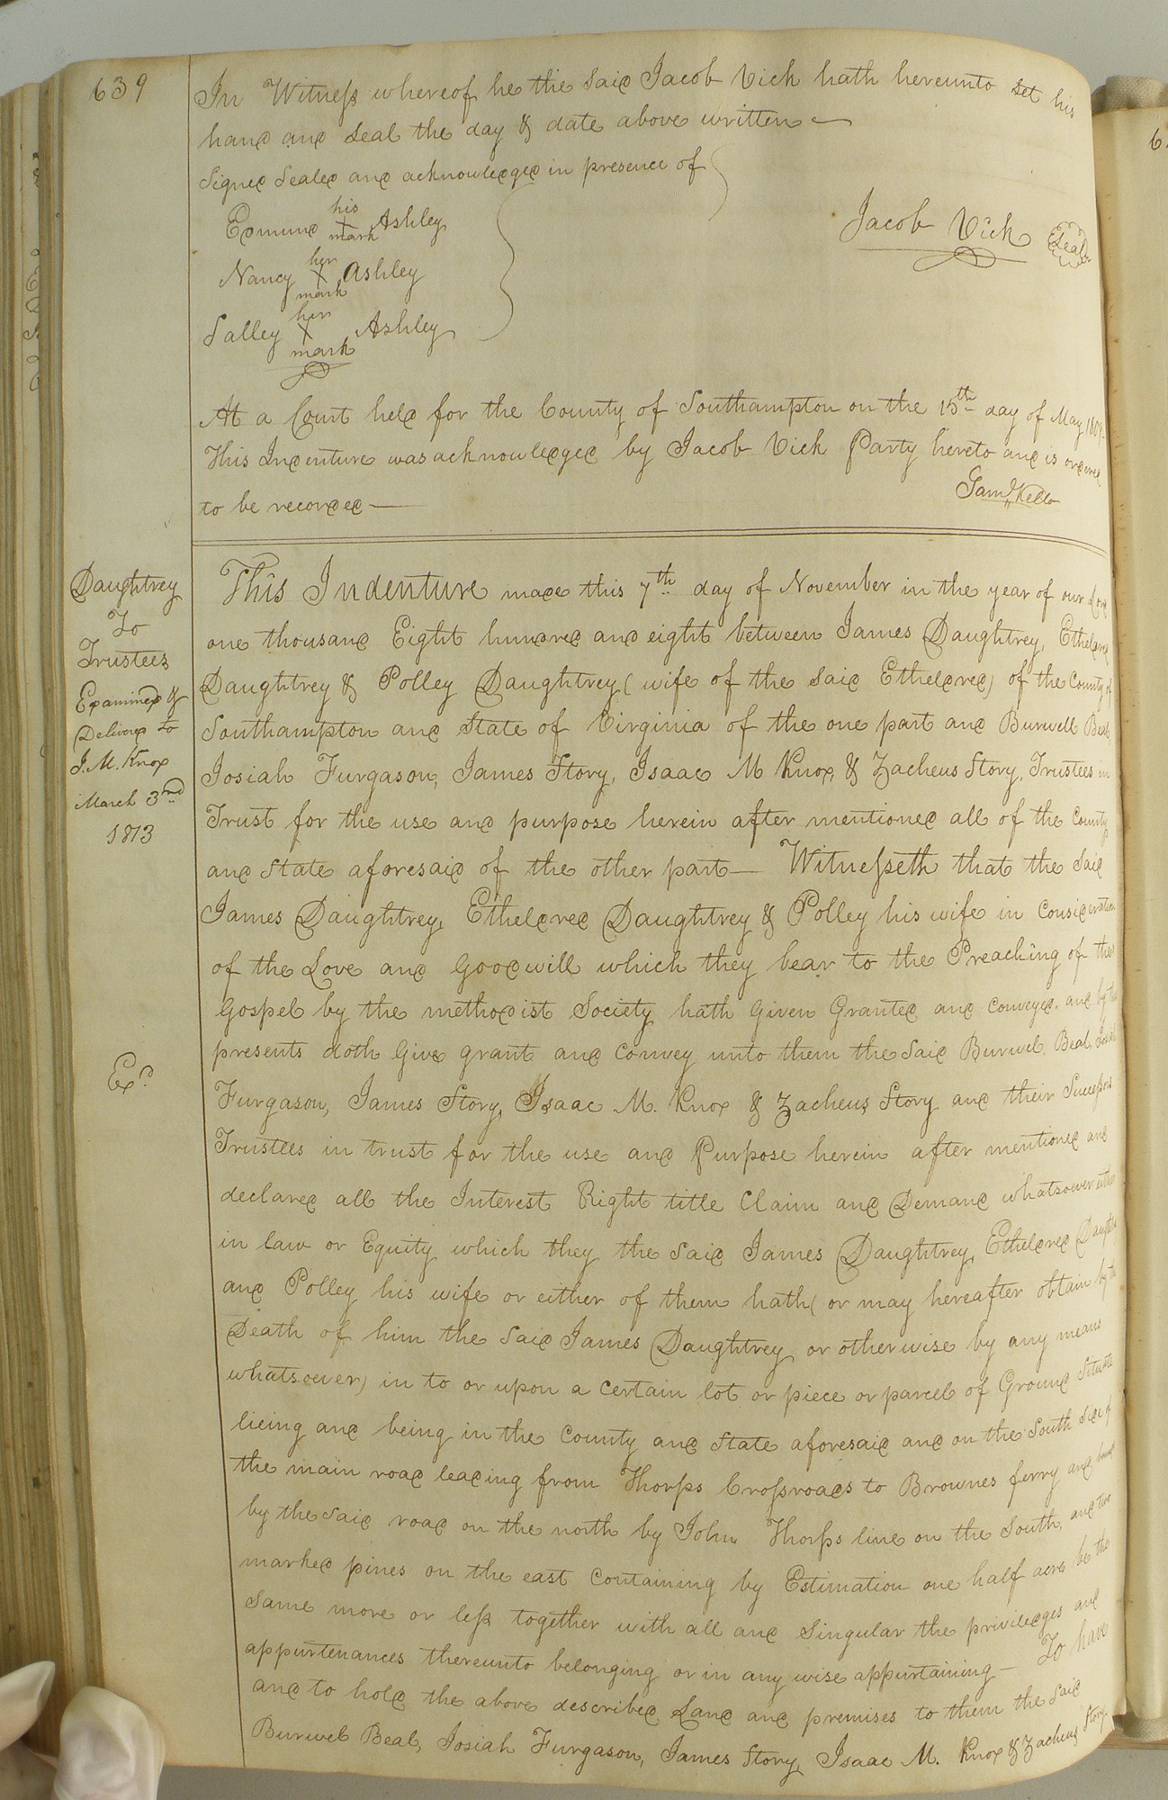 639
In Witness whereof he the Said Jacob Vick hath hereunto Set his
hand and Seal the day & date above written
Signed Sealed and acknowledged in presence of
Edmund his X mark Ashley
Jacob Vick Seal
Nancy her X mark Ashley
Salley her X mark Ashley
At a Court held for the County of Southampton on the 15th day of May
This Indenture was acknowledged by Jacob Vick Party hereto and is ordered
Saml Kello
to be recorded
Daughtrey
To
Trustees
Examined &
Delivered to
J. M. Knox
March 3rd
1813
This Indenture made this 7th day of November in the year of our Lord
one thousand Eight hundred and eight between James Daughtrey, Etheldred
Daughtrey & Polley Daughtrey (wife of the Said Etheldred) of the County of
Southampton and State of Virginia of the one part and Burwell Beal,
Josiah Furgason, James Story, Isaac M Knox, & Zacheus Story, Trustees in
Trust for the use and purpose herein after mentioned all of the County
and State aforesaid of the other part— Witnesseth that the Said
James Daughtrey, Etheldred Daughtrey & Polley his wife in Consideration
of the Love and Goodwill which they bear to the Preaching of the
Gospel by the methodist Society hath Given Granted and Conveyed. and by these
presents doth Give grant and Convey unto them the Said Burwel Beal, Josiah
Exd
Furgason, James Story, Isaac M. Knox & Zacheus Story and their Successors
Trustees in trust for the use and Purpose herein after mentioned and
declared all the Interest Right title Claim and Demand whatsoever either
in law or Equity which they the Said James Daughtrey, Etheldred Daughtrey
and Polley his wife or either of them hath (or may hereafter obtain by the
Death of him the Said James Daughtrey or otherwise by any means
whatsoever) in to or upon a Certain lot or piece or parcel of Ground Situate
lieing and being in the County and State aforesaid and on the South Side of
the main road leading from Thorps Crossroads to Brownes ferry and bound
by the Said road on the north by John Thorps line on the South, and two
marked pines on the east Containing by Estimation one half acre be the
Same more or less together with all and Singular the priviledges and
appurtenances thereunto belonging or in any wise appurtaining— To have
and to hold the above described Land and premises to them the Said
Burwel Beal, Josiah Furgason, James Story, Isaac M. Knox & Zacheus Story